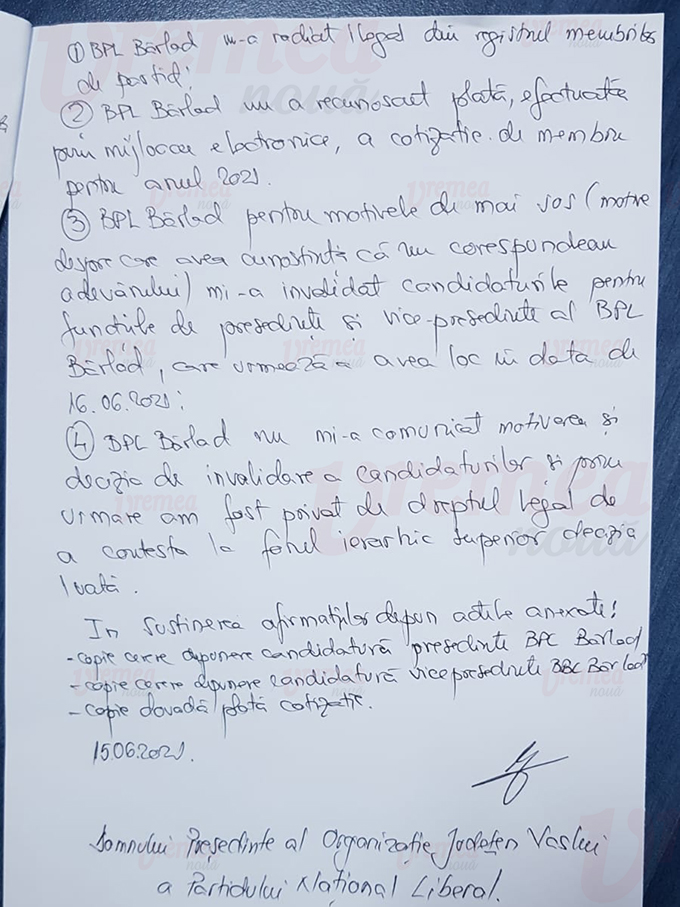 ① BPL Bârlad m-a radiat ilegal din registrul membrilor
de partid;
② BPL Bârlad nu a recunoscut plată, efectuată
prin mijloace electronice, a cotizatie de membru
pentru anul 2021.
③ BPL Bârlad pentru motivele de mai jos (motive
despre care avea cunostintă că nu corespundeau
adevărului) mi-a invalidat candidaturile pentru
functiile de presedinte și vice-presedinte al BPL
Bârlad, care urmează a avea loc în data de
16.06.2021;
④ BPL Bârlad nu mi-a comunicat motivarea și
decizia de invalidare a candidaturilor și prin
urmare am fost privat de dreptul legal de
a contesta la forul ierarhic superior decizia
luată.
In sustinerea afirmatiilor depun actele anexate:
-copie cerere depunere candidatură presedinte BPL Bârlad
-copie cerere depunere candidatură vicepresedinte BBL Bârlad
-copie dovadă plată cotizatie.
15.06.2021.
Domnului Președinte al Organizatiei Județen Vaslui
a Partidului Național Liberal.
vremea
nouă